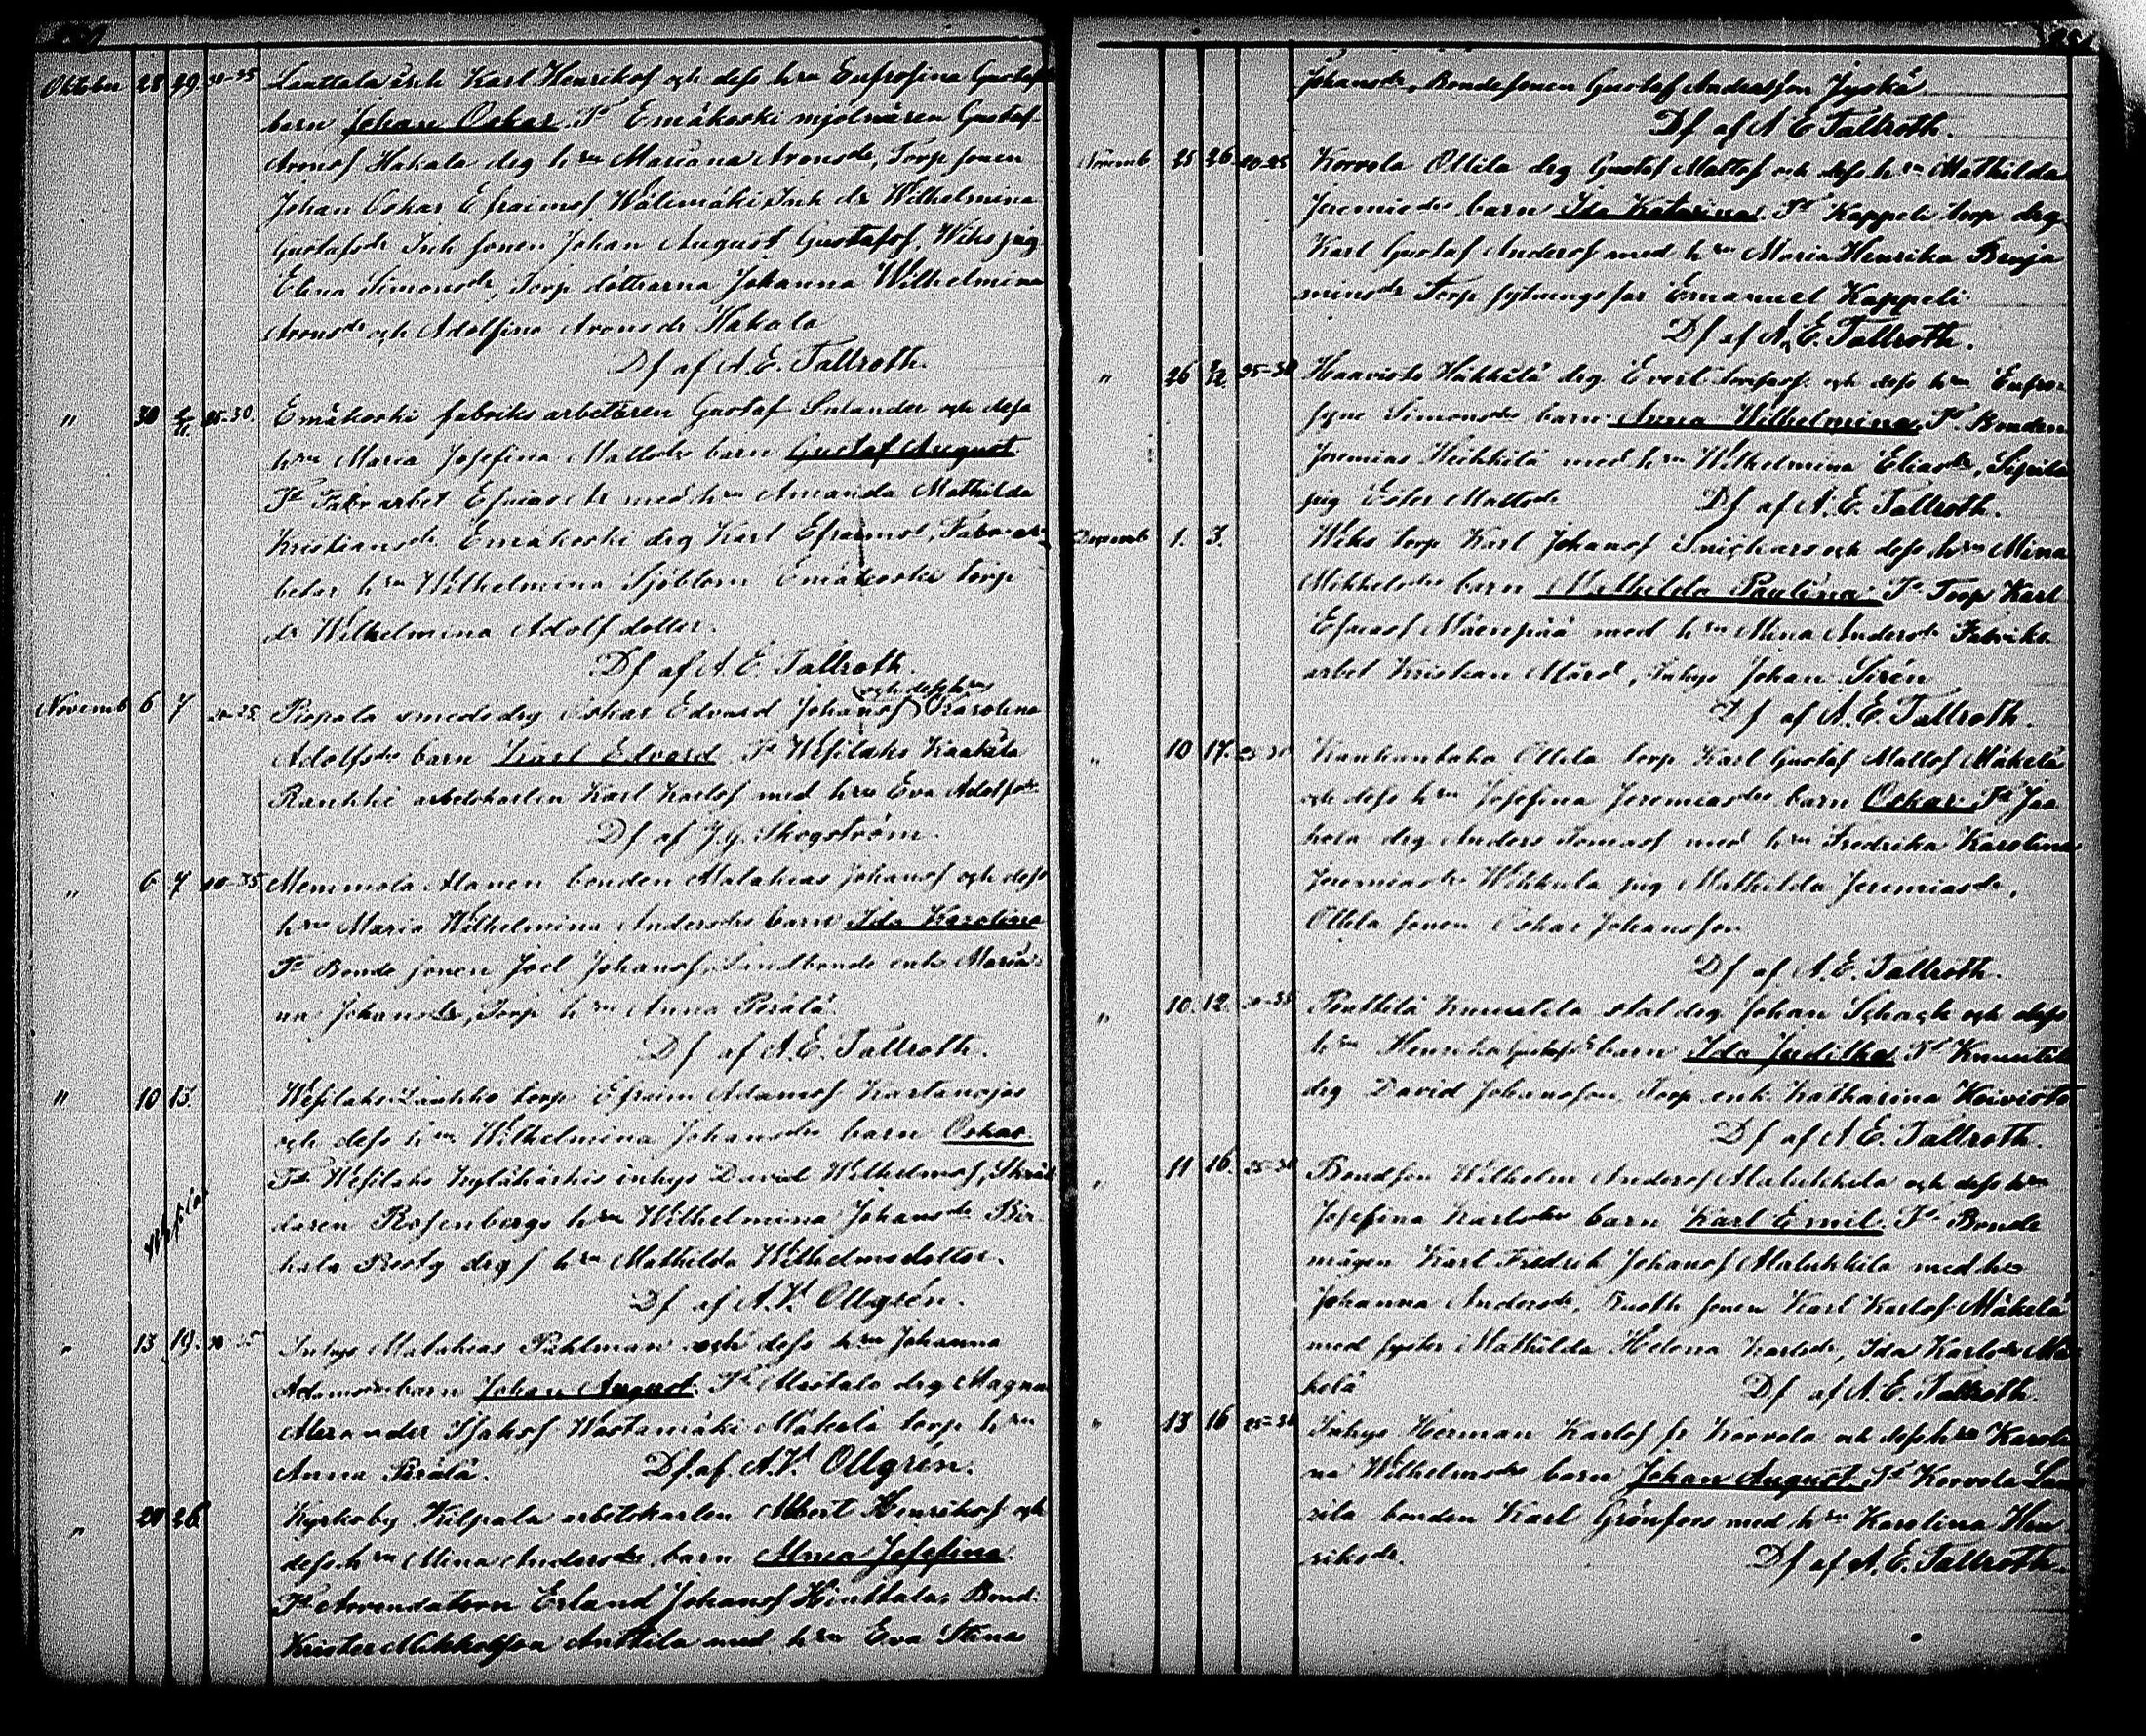 Oktober 28 29 30-35 Lauttala Karl Henrikss och dess hru Eufrosina Gustafs
barn Johan Oskar. Ft Emäkoski mjölnären Gustaf
Aronss Hakala drg hru Mariana Aronsdr, Torp sonen
Johan Oskar Efraimss Wälimäki, Inh dr Wilhelmina
Gustafsdr Inh sonen Johan August Gustafss, Wiks pig
Elina Simonsdr, Torp döttrarna Johanna Wilhelmina
Aronsdr och Adolfina Aronsdr Hakala
Df af A. E. Tallroth.
" 30 2/11 25-30. Emäkoski fabriks arbetaren Gustaf Salander och dess
hru Maria Josefina Mattsdr barn Gustaf August
Ft Fabr arbet med hru Amanda Mathilda
Kristiansdr Emäkoski drg Karl Efraimss, Fabr ar-
betar hru Wilhelmina Sjöblom Emäkoski torp
dr Wilhelmina Adolf dotter.
Df af A. E. Tallroth.
och dess hru
Novemb 6 7 Piopala smeds drg Oskar Edvard Johanss Karolina
Adolfsdr barn Karl Edvard. Ft Wesilaks
arbetskarlen Karl Karlss med hru Eva Adolfsdr
Df af J. G. Skogström.
" 6 7 30-35. Memmola Alanen bonden Malakias Johanss och dess
hru Maria Wilhelmina Andersdr barn Ida Karolina
Ft Bonde sonen Joel Johanss, Landbonde enk Maria-
na Johansdr, Torp hru Anna Perälä.
Df af A. E. Tallroth.
" 10 15. Wesilaks Laukko torp Efraim Adamss Kartanojas
och dess hru Wilhelmina Johansdr barn Oskar.
Ft Wesilaks inhys David Wilhelmss, Skräd
daren Rosenbergs hru Wilhelmina Johansdr Bir
kala drgs hru Mathilda Wilhelmsdotter.
Df af A. V. Ollgrén.
" 13 19. 30-35 Inhys Malakias Pahlman och dess hru Johanna
Adamsdr barn Johan August. Ft drg Magnus
Alexander Isakss Wastamäki Mäkelä torp hru
Anna Perälä. Df. af. A. V. Ollgrén.
" 26 Kyrkoby Kilpala arbetskarlen Albert Henrikss och
dess hru Mina Andersdr barn Anna Josefina.
Ft Arrendatorn Erland Johanss Hinttala, Bond.
Krister Mikkelsson Anttila med hru Eva Stina
Johansdr, Bondesonen Gustaf Andersson Jyskä
Df af A E Tallroth.
Novemb 25 26 20-25 Korvola Ollila drg Gustaf Mattss och dess hru Mathilda
Jeremiedr barn Ida Katarina. Ft Kappeli torp drg
Karl Gustaf Anderss med hru Maria Henrika Benja
minsdr Torp sytningsfar Emanuel Kappeli
Df af A. E. Tallroth.
" 26 25-30 Haavisto Häkkilä drg Evert och dess hru Eufro-
syne Simonsdr barn Anna Wilhelmina. Ft Bonden
Jeremias Heikkilä med hru Wilhelmina Eliasdr,
pig Ester Mattsdr Df af A. E. Tallroth.
Decemb 1. 3. Wiks torp Karl Johanss Snickars och dess hru Mina
Mikkelsdr barn Mathilda Paulina. Ft Torp Karl
Esaiass Mäenpää med hru Mina Andersdr Fabriks
arbet Kristian Mård, Inhys Johan Sirén
Df af A. E. Tallroth.
" 10 17. 25-30 Ollila torp Karl Gustaf Mattss Mäkelä
och dess hru Josefina Jeremiasdr barn Oskar. Ft Jaa
kola drg Anders Tomass med hru Fredrika Karolina
Jeremiasdr Wihkula pig Mathilda Jeremiasdr,
Ollila sonen Oskar Johansson
Df af A. E. Tallroth.
" 10. 12. 30-35 Penttilä Knuutila stat drg Johan Schack och dess
hru Henrika Gustafsdr barn Ida Juditha. Ft Knuutila
drg David Johansson, Torp enk. Katharina Koivisto
Df af A. E. Tallroth.
" 11 16. 25-30 Bondson Wilhelm Anderss Alalukkila och dess hru
Josefina Karlsdr barn Karl Emil. Ft Bonde
mågen Karl Fredrik Johanss Alalukkila med hru
Johanna Andersdr, sonen Karl Karlss Mäkelä
med syster Mathilda Helena Karlsdr, Ida Karlsdr Mä-
kelä Df af A. E. Tallroth.
" 13 16 25-30 Inhys Herman Karlss fr Korvola och dess hru Karoli
na Wilhelmsdr barn Johan August. Ft Korvola Lau
rila bonden Karl Grönfors med hru Karolina Hen
riksdr. Df af A. E. Tallroth.